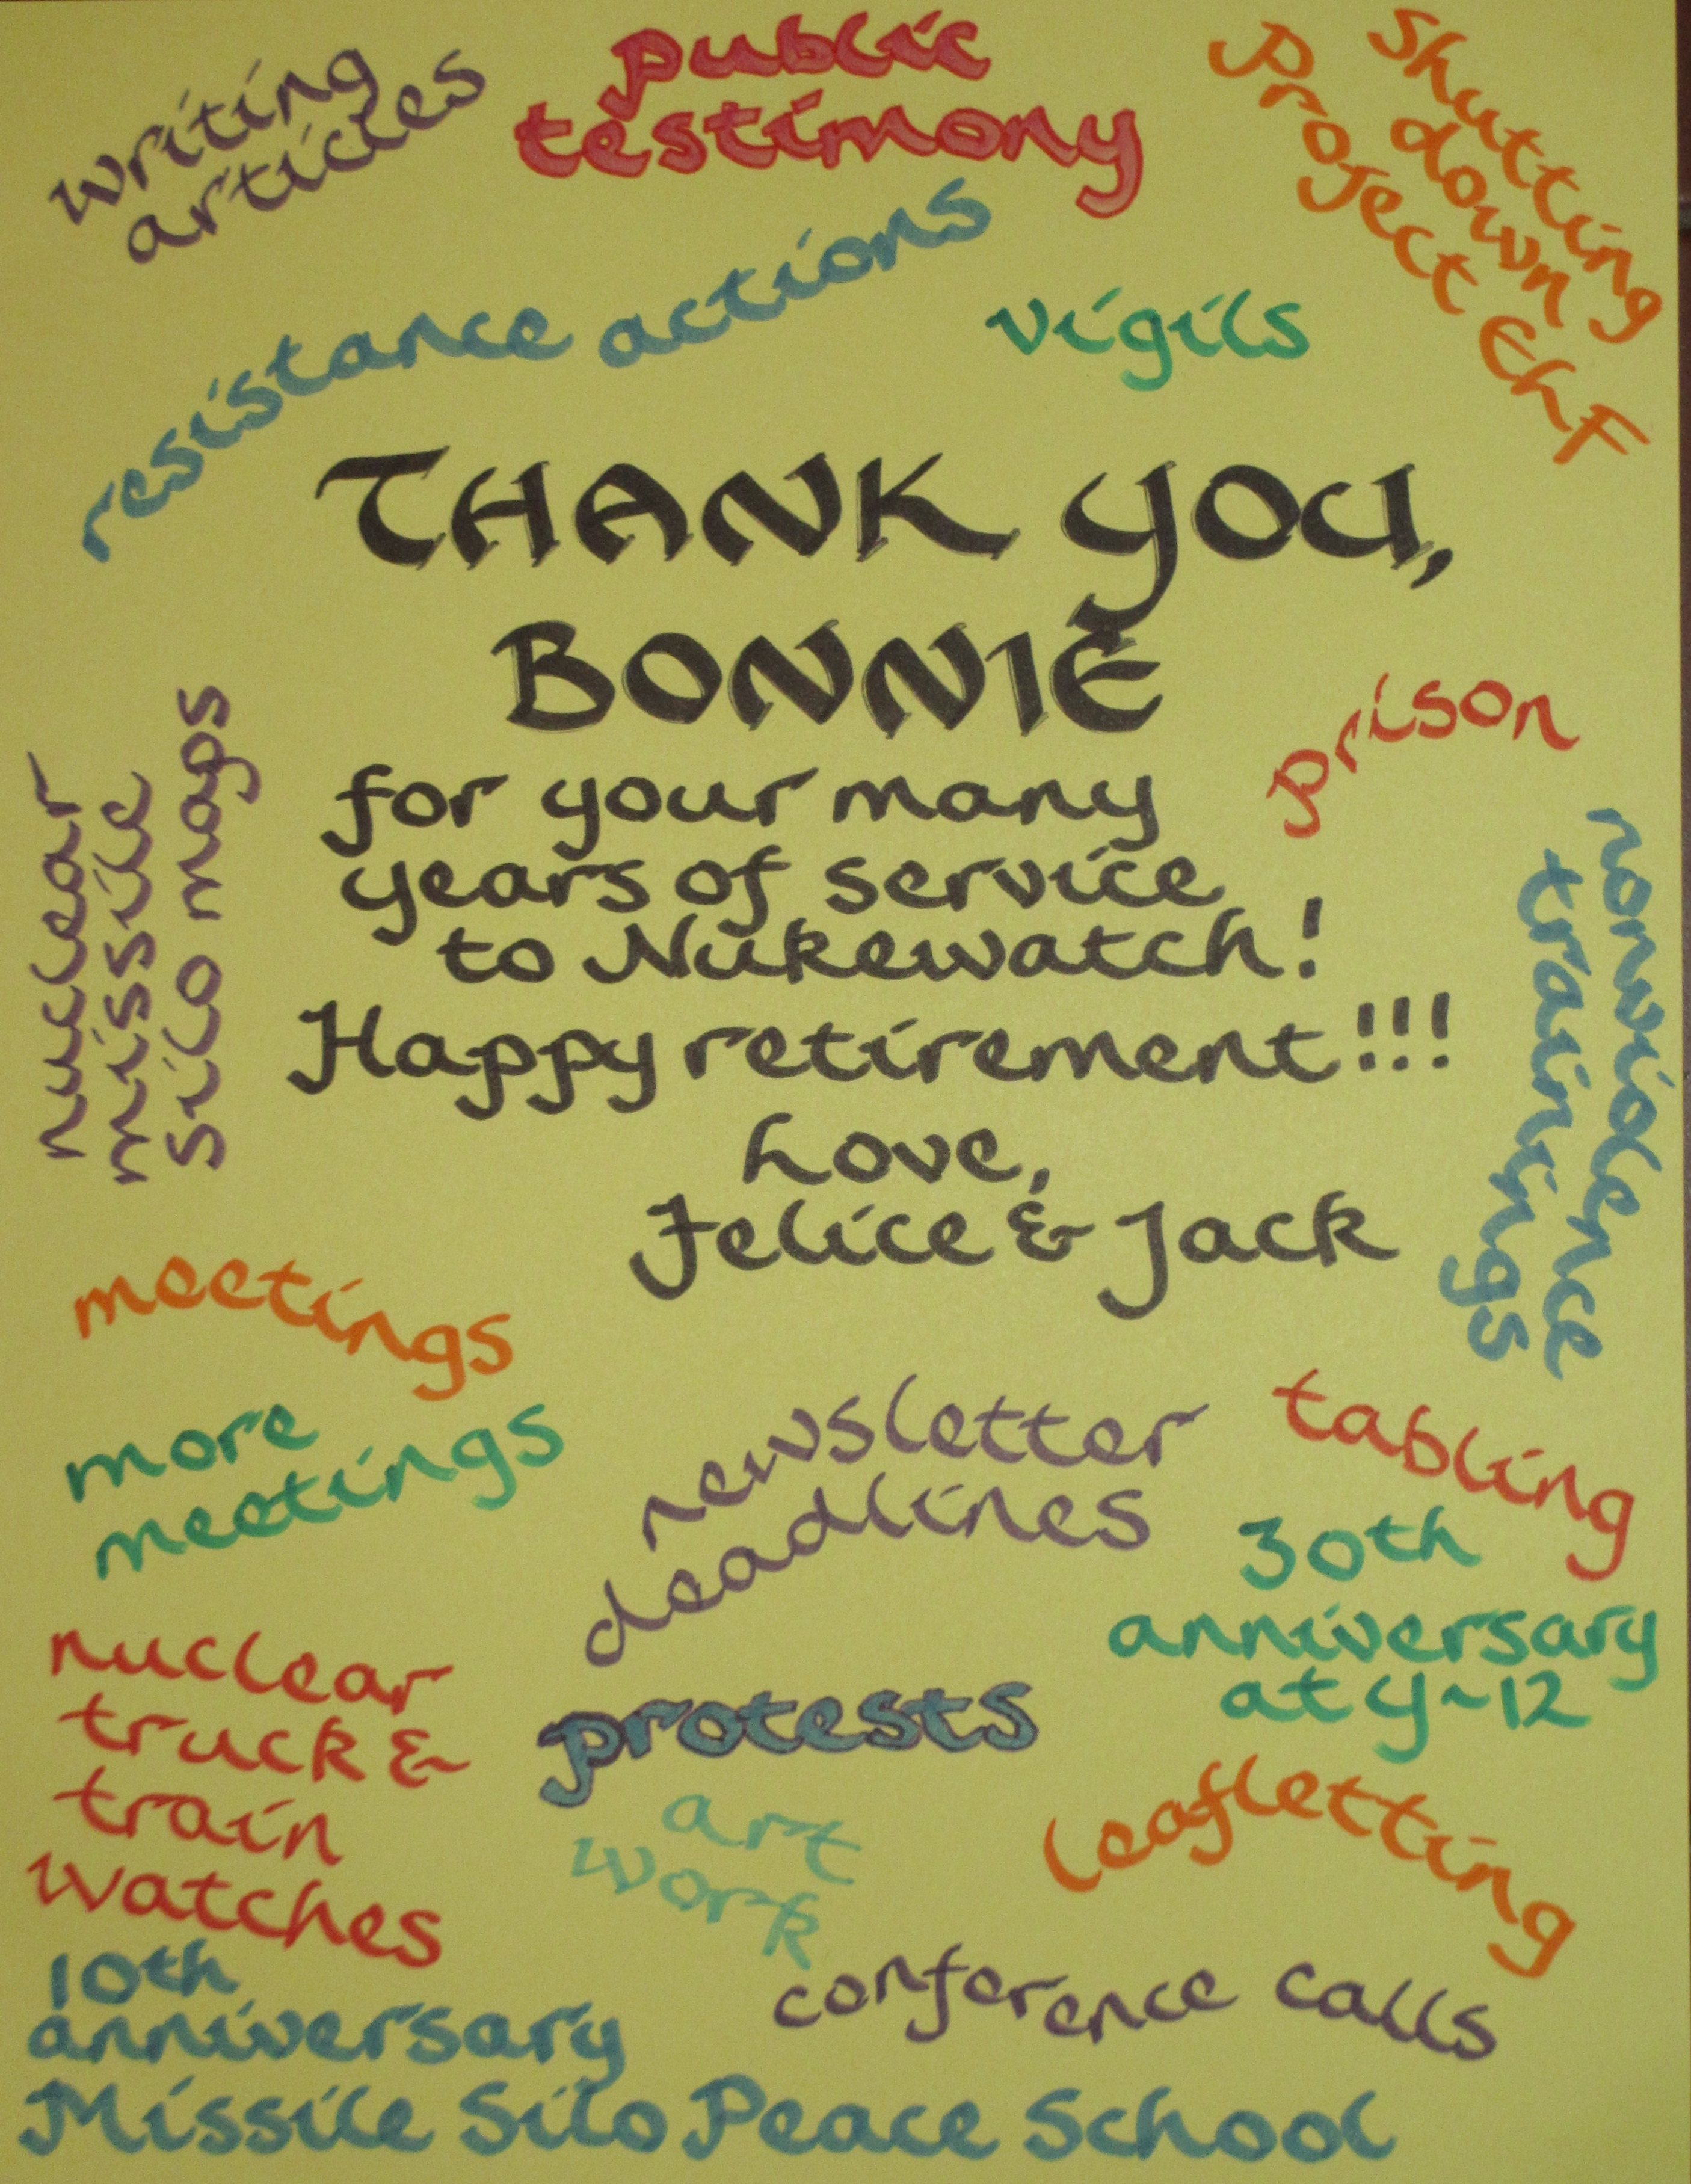 writing
articles
public
testimony
shutting
down
Project ELF
resistance actions
vigils
THANK YOU,
BONNIE
for your many
years of service
to Nukewatch!
Happy retirement!!!
Love,
Felice & Jack
prison
nuclear
missile
silo maps
nonviolence
trainings
meetings
more
meetings
newsletter
deadlines
tabling
30th
anniversary
at Y-12
nuclear
truck &
train
watches
protests
art
work
leafletting
10th
anniversary
Missile Silo Peace School
conference calls